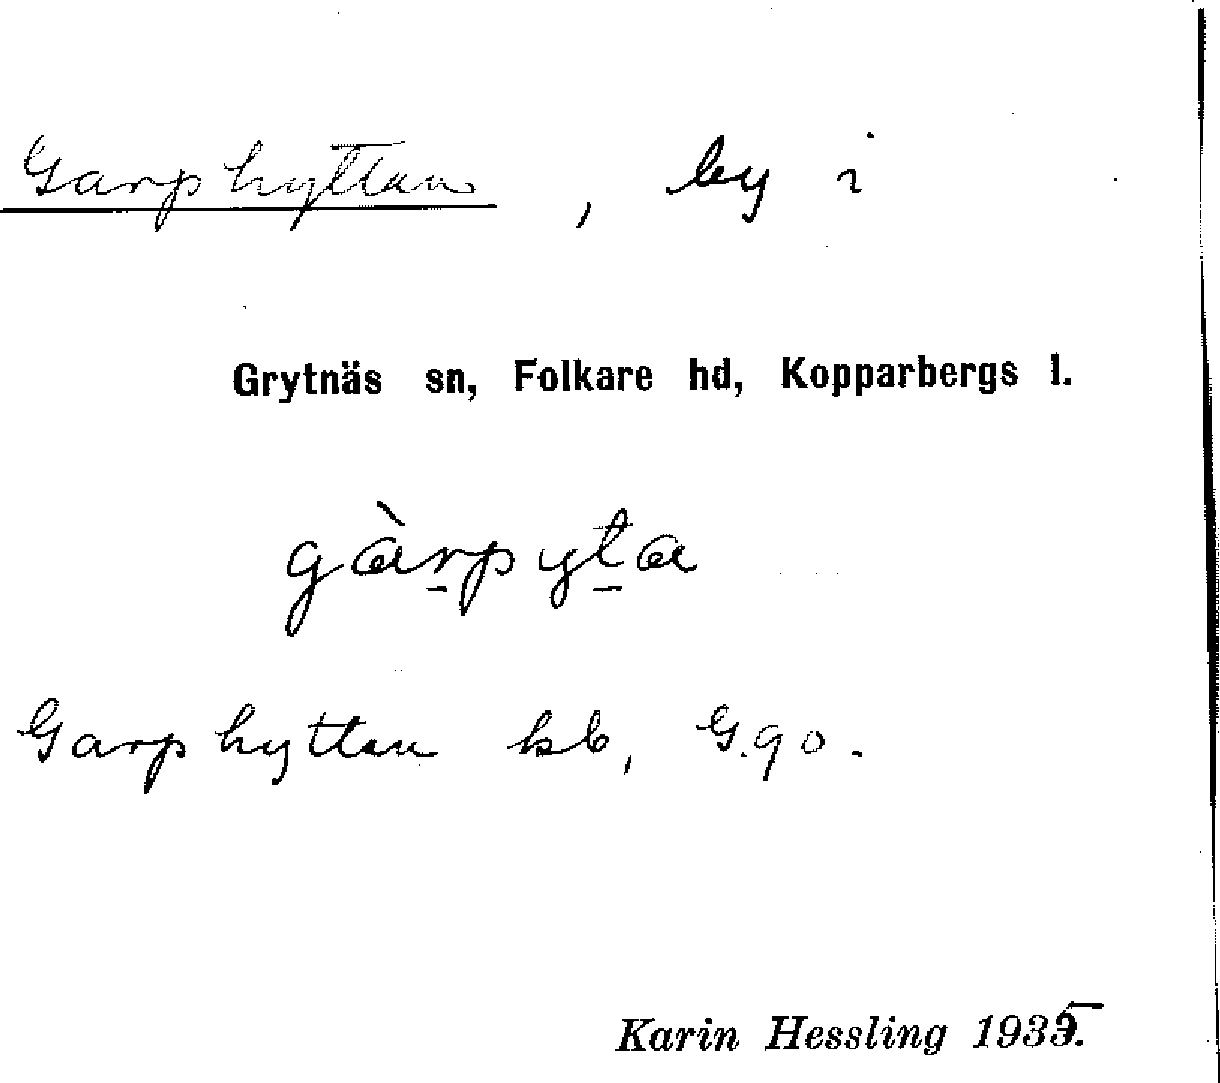 Garphyttan, by i
Grytnäs sn, Folkare hd, Kopparbergs l.
gàrpyta
Garphyttan kb, G.90.
Karin Hessling 1935.